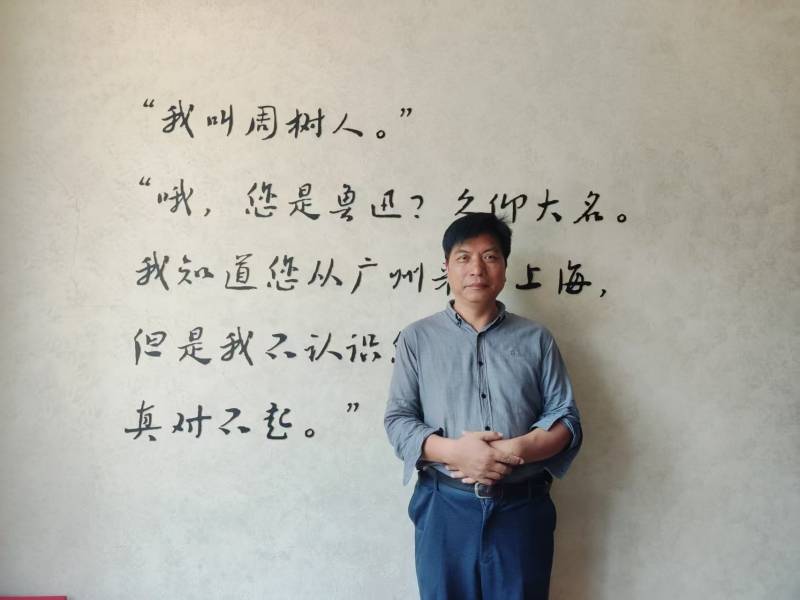 “我叫周树人。”
“哦，您是鲁迅？久仰大名。
我知道您从广州来 上海，
但是我不认识
真对不起。”